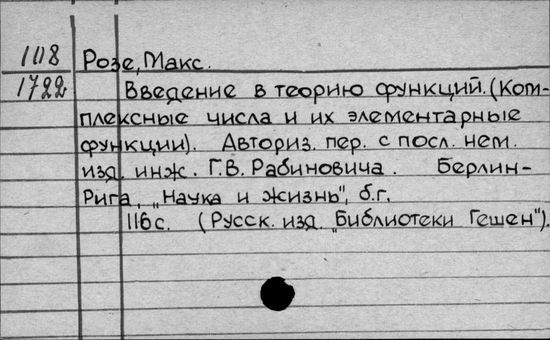 1118 Розе, Макс.
1722 Введение в теорию функций. (Ком-
плексные числа и их элементарные
функции). Авториз. пер. с посл. нем.
изд. инж. Г.В. Рабиновича. Берлин-
Рига, „Наука и жизнь", б.г.
116с. (Русск. изд. „Библиотеки Гешен").